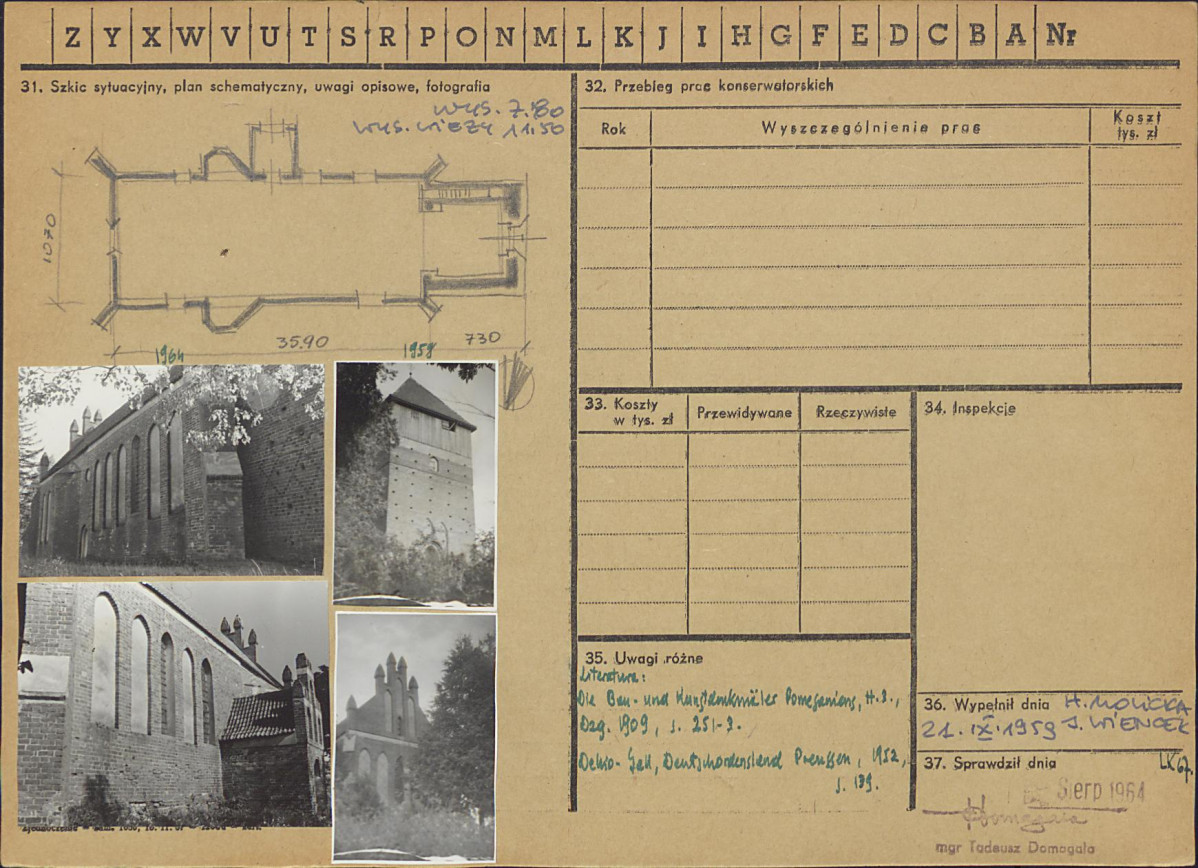 Z Y X W V U T S R P O N M L K J I H G F E D C B A Nr
31. Szkic sytuacyjny, plan schematyczny, uwagi opisowe, fotografia
WYS. 7.80
WYS. WIEŻY 11.50
1070
35.90
730
1964
1958
32. Przebieg prac konserwatorskich
Rok
Wyszczególnienie prac
Koszt
tys. zł
33. Koszty
w tys. zł
Przewidywane
Rzeczywiste
34. Inspekcje
35. Uwagi różne
Literatura:
Die Bau- und Kunstdenkmäler Pomesaniens, H.3.,
Dzg. 1909, s. 251-3.
Dehio-Gall, Deutschordensland Preussen, 1952,
s. 139.
36. Wypełnił dnia H. MOLICKA
21. IX. 1959 J. WIENCEK
37. Sprawdził dnia
LK 67.
Sierp 1964
Domagała
mgr Tadeusz Domagała